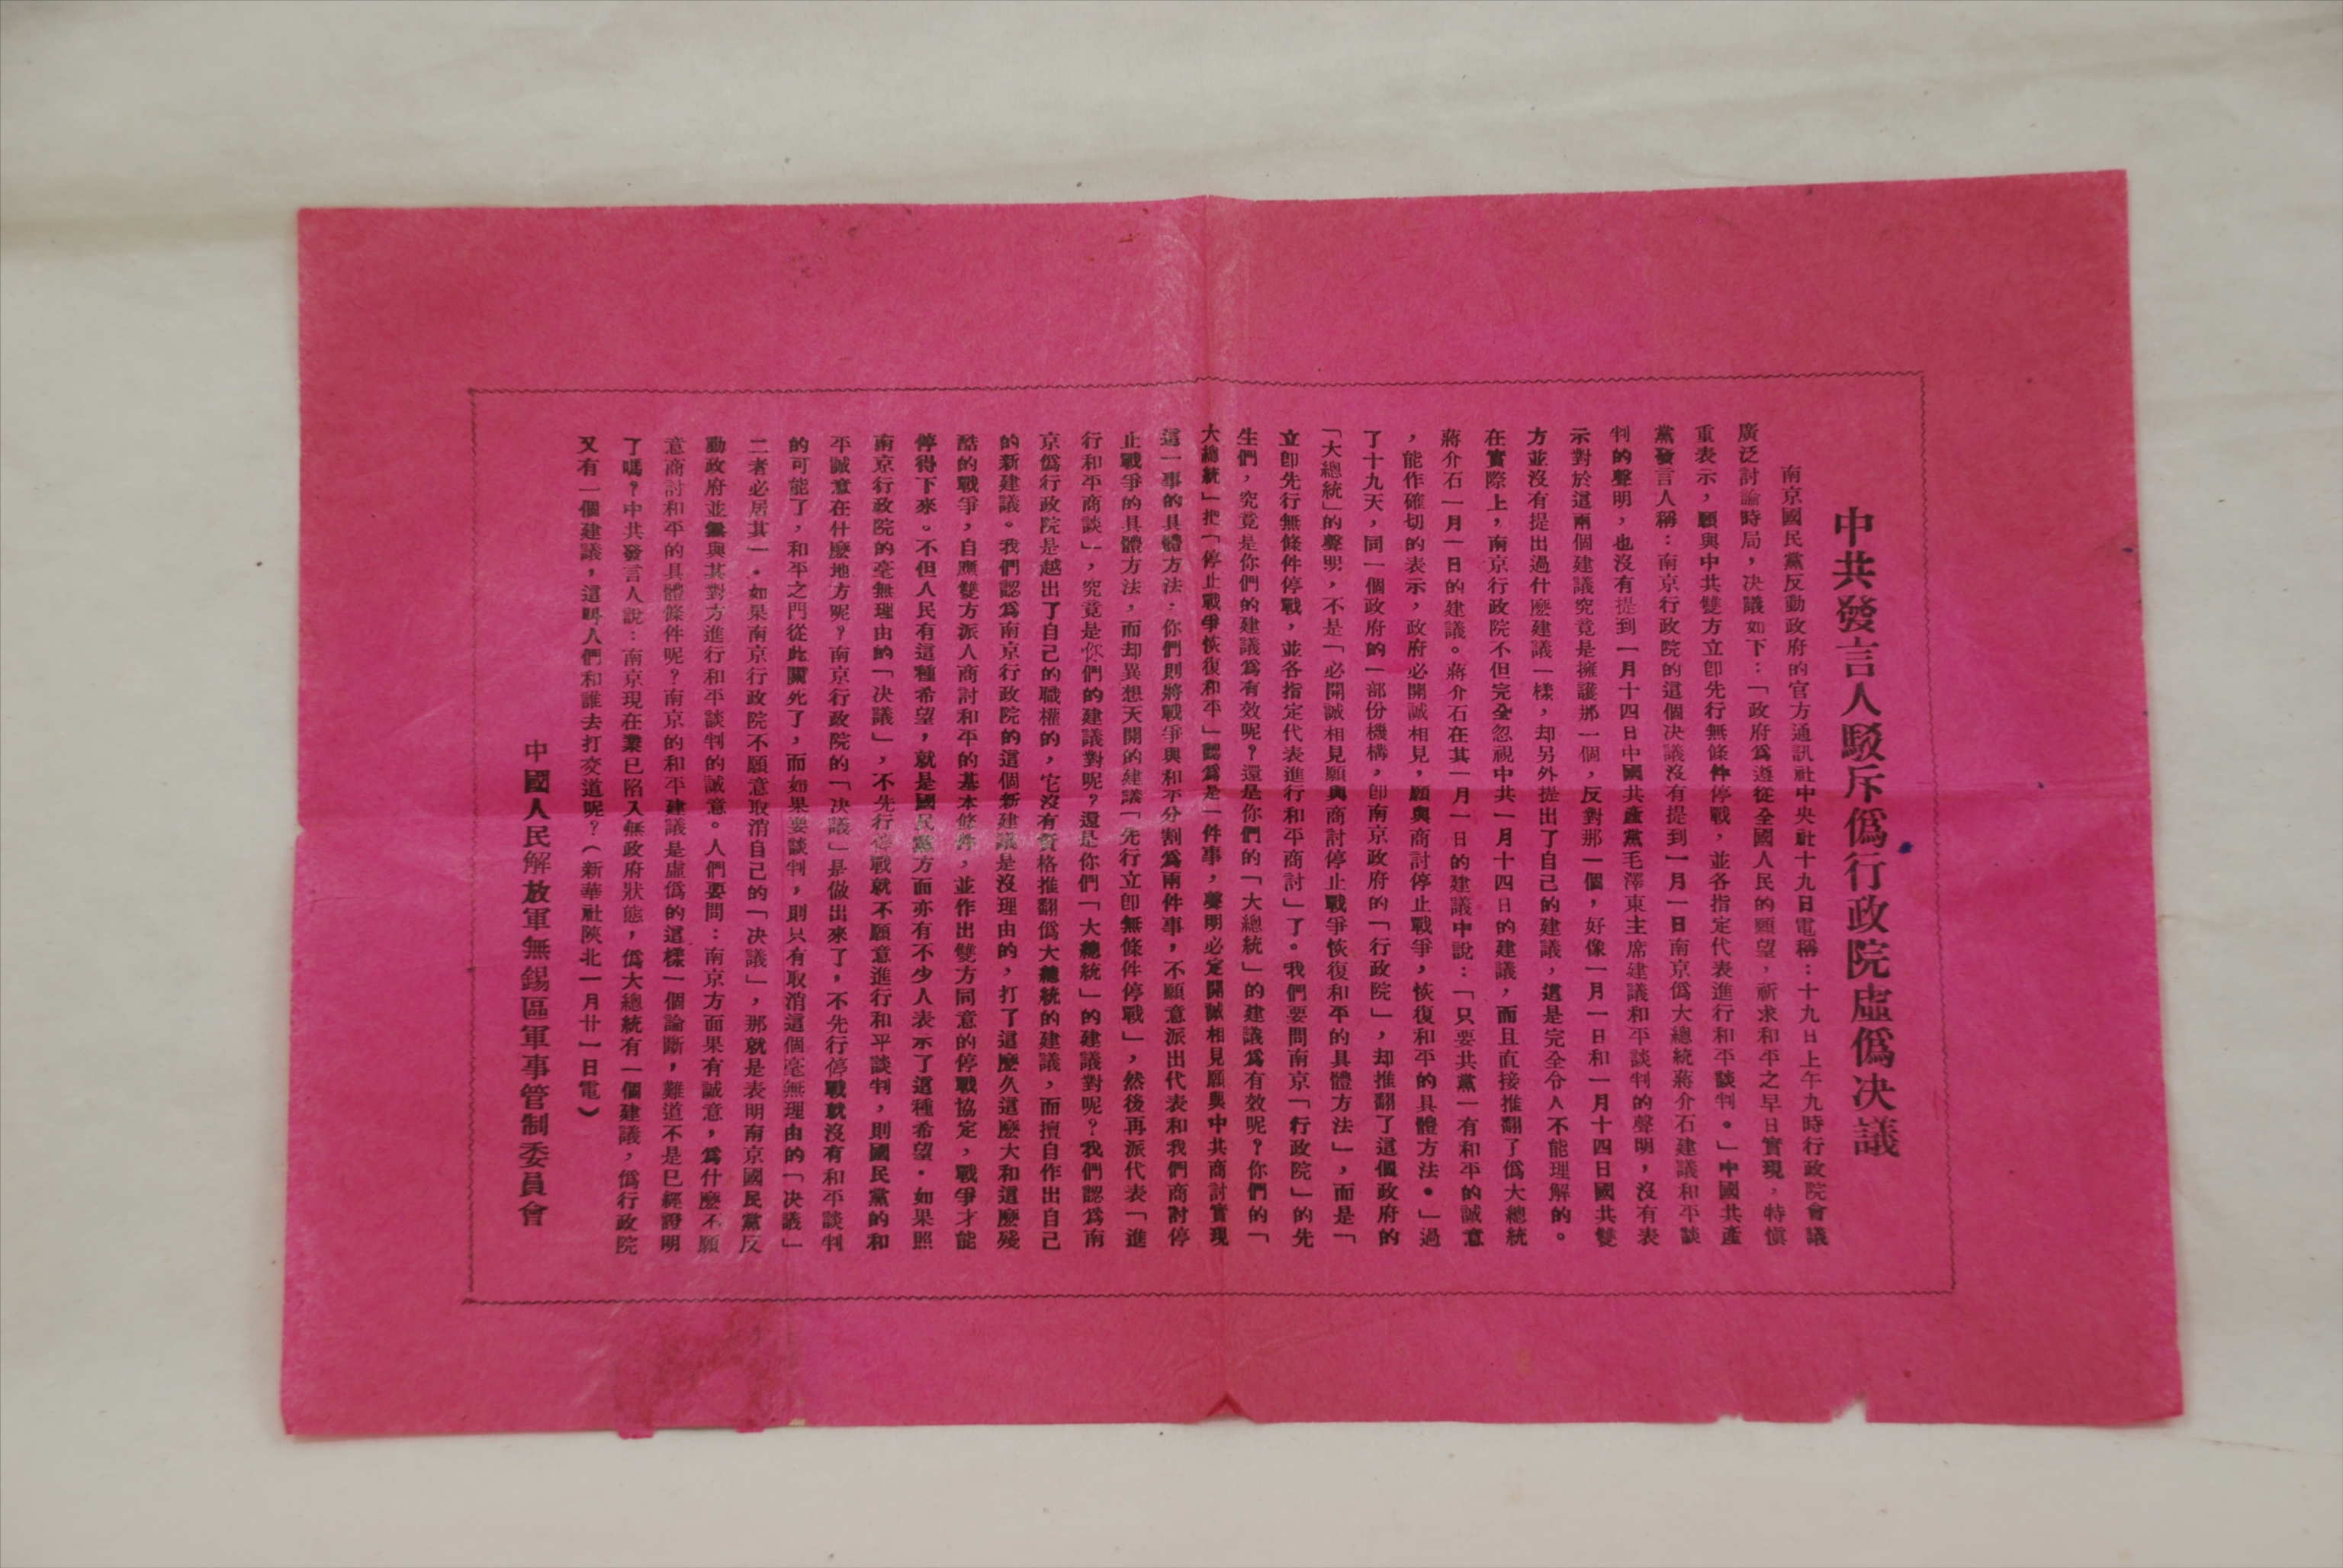 中共發言人駁斥僞行政院虛僞决議
南京國民黨反動政府的官方通訊社中央社十九日電稱：十九日上午九時行政院會議
廣泛討論時局，决議如下：「政府爲遵從全國人民的願望，祈求和平之早日實現，特愼
重表示，願與中共雙方立卽先行無條件停戰，並各指定代表進行和平談判。」中國共產
黨發言人稱：南京行政院的這個决議沒有提到一月一日南京僞大總統蔣介石建議和平談
判的聲明，也沒有提到一月十四日中國共產黨毛澤東主席建議和平談判的聲明，沒有表
示對於這兩個建議究竟是擁護那一個，反對那一個，好像一月一日和一月十四日國共雙
方並沒有提出過什麼建議一樣，却另外提出了自己的建議，這是完全令人不能理解的。
在實際上，南京行政院不但完全忽視中共一月十四日的建議，而且直接推翻了僞大總統
蔣介石一月一日的建議。蔣介石在其一月一日的建議中說：「只要共黨一有和平的誠意
，能作確切的表示，政府必開誠相見，願與商討停止戰爭，恢復和平的具體方法。」過
了十九天，同一個政府的一部份機構，卽南京政府的「行政院」，却推翻了這個政府的
「大總統」的聲明，不是「必開誠相見願與商討停止戰爭恢復和平的具體方法」，而是「
立卽先行無條件停戰，並各指定代表進行和平商討」了。我們要問南京「行政院」的先
生們，究竟是你們的建議爲有效呢？還是你們的「大總統」的建議爲有效呢？你們的「
大總統」把「停止戰爭恢復和平」認爲是一件事，聲明必定開誠相見願與中共商討實現
這一事的具體方法；你們則將戰爭與和平分割爲兩件事，不願意派出代表和我們商討停
止戰爭的具體方法，而却異想天開的建議「先行立卽無條件停戰」，然後再派代表「進
行和平商談」，究竟是你們的建議對呢？還是你們「大總統」的建議對呢？我們認爲南
京僞行政院是越出了自己的職權的，它沒有資格推翻僞大總統的建議，而擅自作出自己
的新建議。我們認爲南京行政院的這個新建議是沒理由的，打了這麼久這麼大和這麼殘
酷的戰爭，自應雙方派人商討和平的基本條件，並作出雙方同意的停戰協定，戰爭才能
停得下來。不但人民有這種希望，就是國民黨方面亦有不少人表示了這種希望。如果照
南京行政院的毫無理由的「决議」，不先行停戰就不願意進行和平談判，則國民黨的和
平誠意在什麼地方呢？南京行政院的「决議」是做出來了，不先行停戰就沒有和平談判
的可能了，和平之門從此關死了，而如果要談判，則只有取消這個毫無理由的「决議」
二者必居其一。如果南京行政院不願意取消自己的「决議」，那就是表明南京國民黨反
動政府並無與其對方進行和平談判的誠意。人們要問：南京方面果有誠意，爲什麼不願
意商討和平的具體條件呢？南京的和平建議是虛僞的這樣一個論斷，難道不是已經證明
了嗎？中共發言人說：南京現在業已陷入無政府狀態，僞大總統有一個建議，僞行政院
又有一個建議，這呌人們和誰去打交道呢？（新華社陝北一月廿一日電）
中國人民解放軍無錫區軍事管制委員會